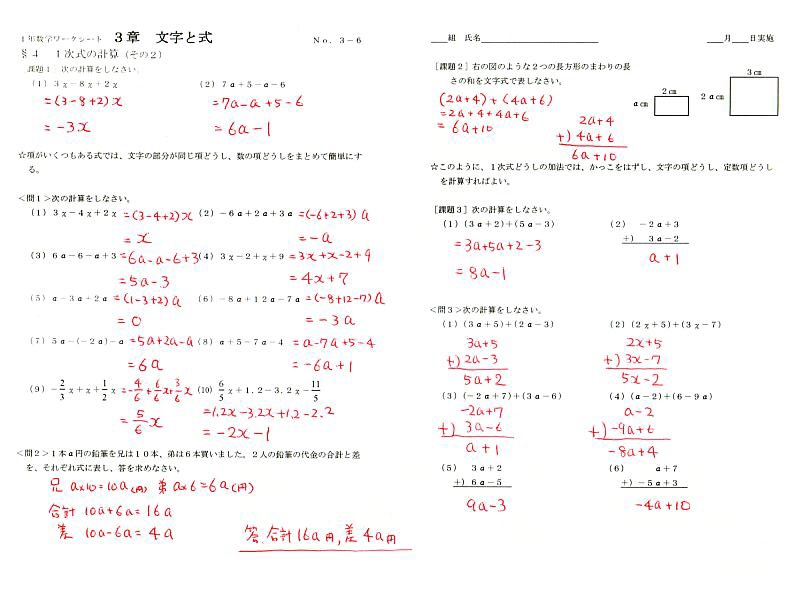 1年数学ワークシート 3章 文字と式 No．3－6
§4 1次式の計算（その2）
課題1 次の計算をしなさい。
(1) 3χ－8χ＋2χ (2) 7a＋5－a－6
=(3-8+2)x =7a-a+5-6
=-3x =6a-1
☆項がいくつもある式では、文字の部分が同じ項どうし、数の項どうしをまとめて簡単にす
る。
＜問1＞次の計算をしなさい。
(1) 3χ－4χ＋2χ =(3-4+2)x (2) －6a＋2a＋3a =(-6+2+3)a
=x =-a
(3) 6a－6－a＋3 =6a-a-6+3 (4) 3χ－2＋χ＋9 =3x+x-2+9
=5a-3 =4x+7
(5) a－3a＋2a =(1-3+2)a (6) －8a＋12a－7a =(-8+12-7)a
=0 =-3a
(7) 5a－(－2a)－a =5a+2a-a (8) a＋5－7a－4 =a-7a+5-4
=6a =-6a+1
(9) －2/3χ＋χ＋1/2χ =-4/6x+6/6x+3/6x (10) 6/5χ＋1.2－3.2χ－11/5
=5/6x =1.2x-3.2x+1.2-2.2
=-2x-1
＜問2＞1本a円の鉛筆を兄は10本、弟は6本買いました。2人の鉛筆の代金の合計と差
を、それぞれ式に表し、答を求めなさい。
兄 a×10=10a(円) 弟 a×6=6a(円)
合計 10a+6a=16a
差 10a-6a=4a
答. 合計16a円, 差4a円
組 氏名 月 日実施
[課題2] 右の図のような2つの長方形のまわりの長
さの和を文字式で表しなさい。
2㎝ 3㎝
a㎝ 2a㎝
(2a+4)+(4a+6)
=2a+4+4a+6
=6a+10
2a+4
+) 4a+6
6a+10
☆このように、1次式どうしの加法では、かっこをはずし、文字の項どうし、定数項どうし
を計算すればよい。
[課題3] 次の計算をしなさい。
(1) (3a＋2)＋(5a－3) (2) －2a＋3
=3a+5a+2-3 +) 3a－2
=8a-1 a+1
＜問3＞次の計算をしなさい。
(1) (3a＋5)＋(2a－3) (2) (2χ＋5)＋(3χ－7)
3a+5 2x+5
+) 2a-3 +) 3x-7
5a+2 5x-2
(3) (－2a＋7)＋(3a－6) (4) (a－2)＋(6－9a)
-2a+7 a-2
+) 3a-6 +) -9a+6
a+1 -8a+4
(5) 3a＋2 (6) a＋7
+) 6a－5 +) －5a＋3
9a-3 -4a+10